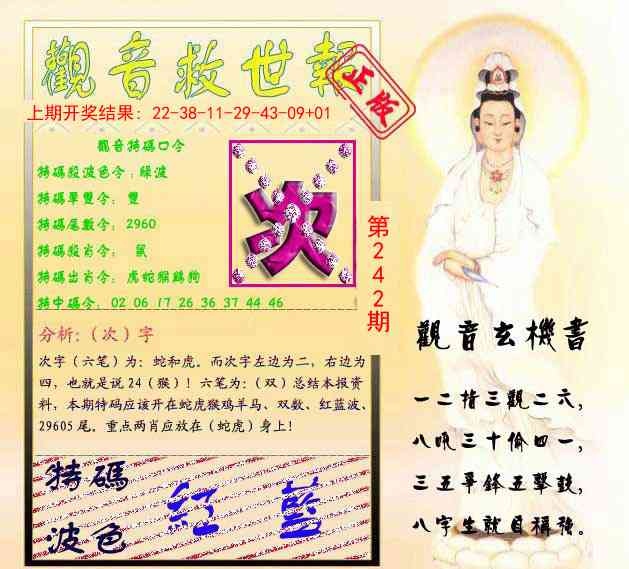 觀音救世報
正版
上期开奖结果：22-38-11-29-43-09+01
觀音特碼口令
特碼殺波色令：綠波
特碼單雙令： 雙
特碼尾數令： 2960
特碼殺肖令： 鼠
特碼出肖令： 虎蛇猴鷄狗
特中碼令： 02 06 17 26 36 37 44 46
次
第242期
分析：（次）字
次字（六笔）为：蛇和虎。而次字左边为二，右边为
四，也就是说 24（猴）！六笔为：（双）总结本报资
料，本期特码应该开在蛇虎猴鸡羊马、双数、红蓝波、
29605 尾。重点两肖应放在（蛇虎）身上！
特碼
波色
紅 藍
觀音玄機書
一二指三觀二六，
八吼三十偷四一，
三五爭鋒五擊鼓，
八字生就自稱強。